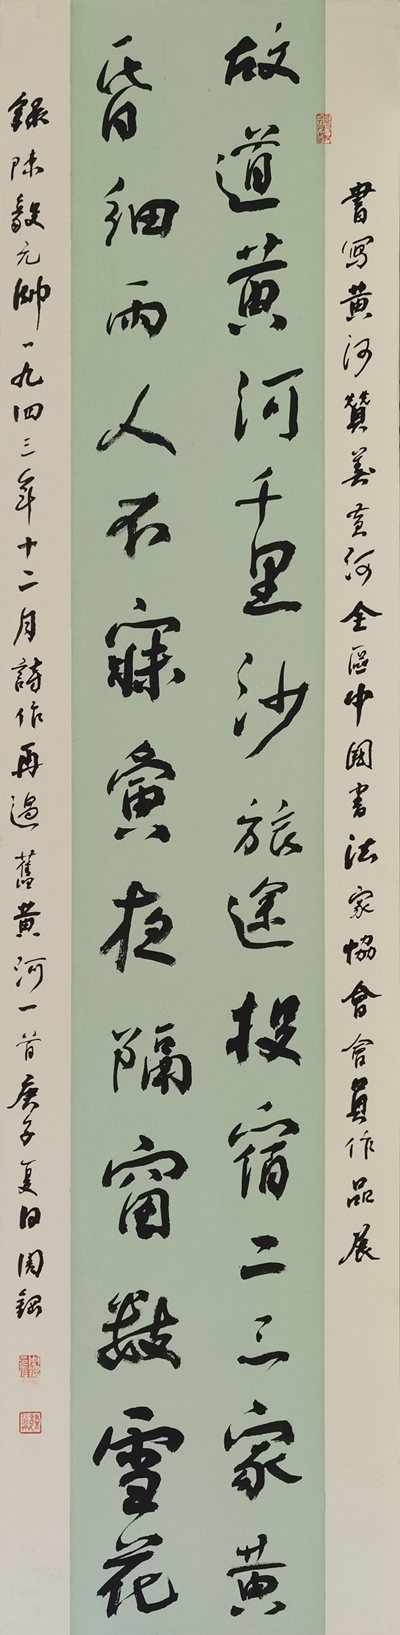 書写黄河贊美黄河全區中國書法家協會會員作品展
故道黄河千里沙旅途投宿二三家黄
昏細雨人不寐夤夜隔窗數雪花
錄陳毅元帥一九四三年十二月詩作再過舊黄河一首庚子夏日